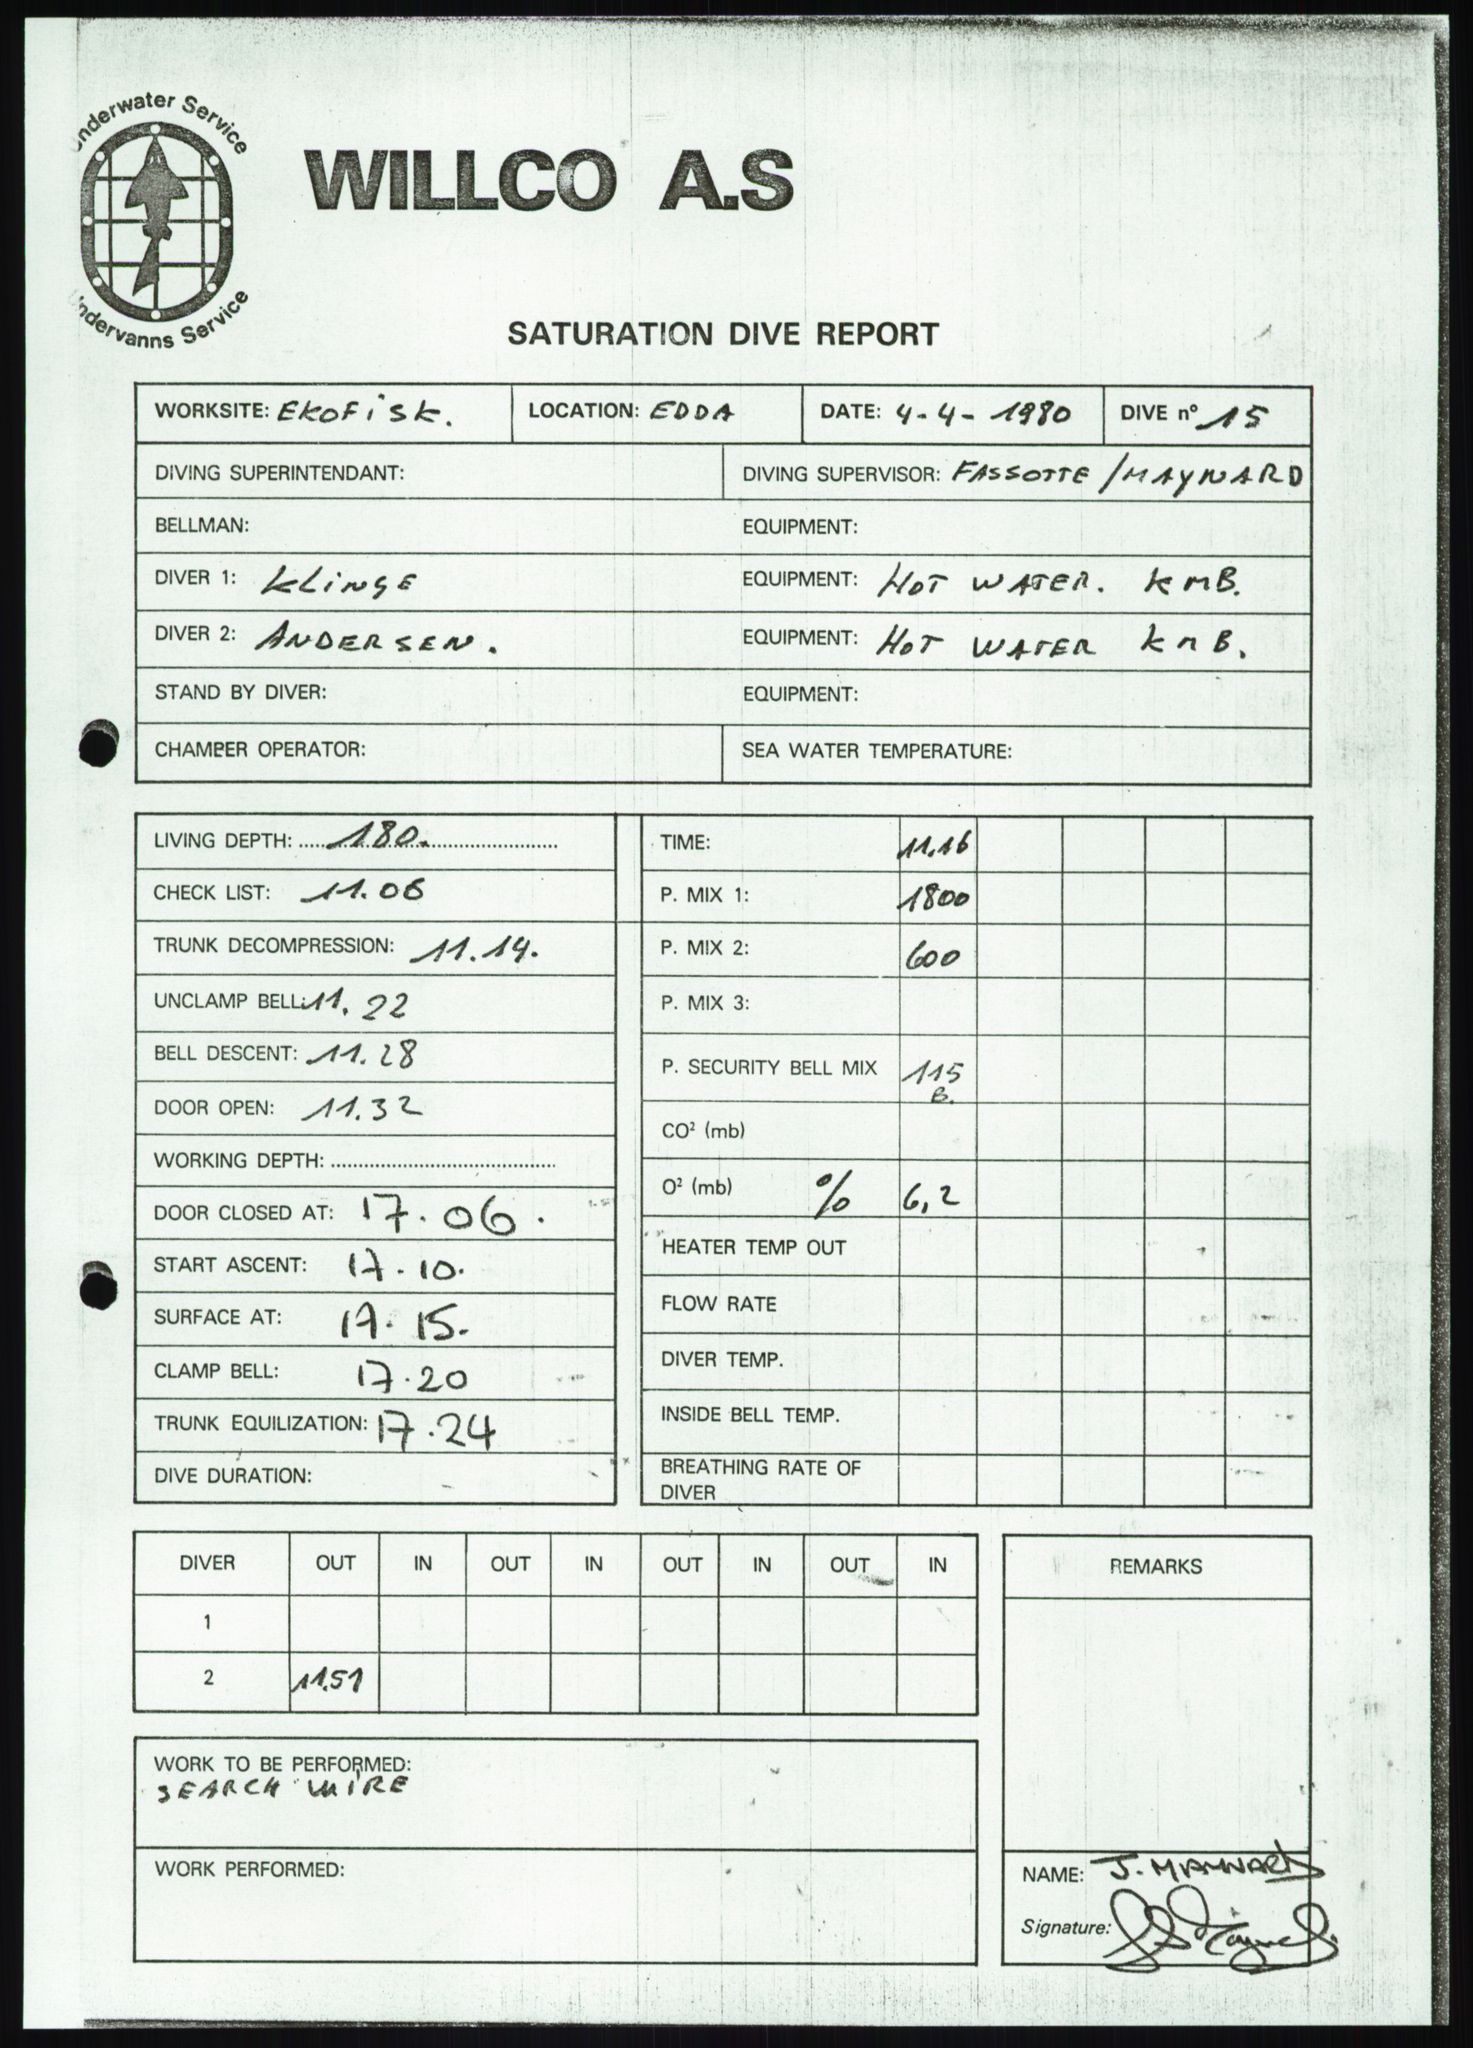 Underwater Service
WILLCO A.S
Undervanns Service
SATURATION DIVE REPORT
WORKSITE: EKOFISK. LOCATION: EDDA DATE: 4-4-1980 DIVE nº 15
DIVING SUPERINTENDANT: DIVING SUPERVISOR: FASSOTTE / MAYNARD
BELLMAN: EQUIPMENT:
DIVER 1: KLINGE EQUIPMENT: HOT WATER. KMB.
DIVER 2: ANDERSEN. EQUIPMENT: HOT WATER KMB.
STAND BY DIVER: EQUIPMENT:
CHAMBER OPERATOR: SEA WATER TEMPERATURE:
LIVING DEPTH: 180.
CHECK LIST: 11.06
TRUNK DECOMPRESSION: 11.14.
UNCLAMP BELL: 11.22
BELL DESCENT: 11.28
DOOR OPEN: 11.32
WORKING DEPTH:
DOOR CLOSED AT: 17.06.
START ASCENT: 17.10.
SURFACE AT: 17.15.
CLAMP BELL: 17.20
TRUNK EQUILIZATION: 17.24
DIVE DURATION:
TIME: 11.16
P. MIX 1: 1800
P. MIX 2: 600
P. MIX 3:
P. SECURITY BELL MIX 115
B.
CO² (mb)
O² (mb) % 6,2
HEATER TEMP OUT
FLOW RATE
DIVER TEMP.
INSIDE BELL TEMP.
BREATHING RATE OF
DIVER
DIVER OUT IN OUT IN OUT IN OUT IN
1
2 11.51
REMARKS
WORK TO BE PERFORMED:
SEARCH WIRE
WORK PERFORMED:
NAME: J. MAYNARD
Signature: